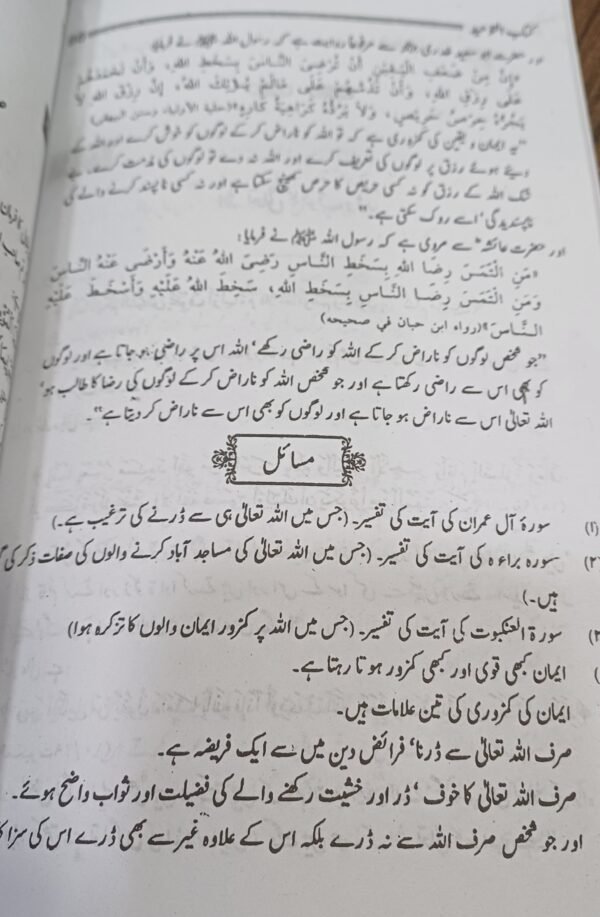 کتاب التوحید
اور حضرت ابو سعید خدری سے مرفوعاً روایت ہے کہ رسول اللہ ﷺ نے فرمایا:
«إِنَّ مِنْ ضَعْفِ الْيَقِيْنِ أَنْ تُرْضِيَ النَّاسَ بِسَخَطِ اللهِ، وَأَنْ تَحْمَدَهُمْ
عَلَى رِزْقِ اللهِ، وَأَنْ تَذُمَّهُمْ عَلَى مَالَمْ يُؤْتِكَ اللهُ، إِنَّ رِزْقَ اللهِ لَا
يَجُرُّهُ حِرْصُ حَرِيْصٍ، وَلَا يَرُدُّهُ كَرَاهِيَةُ كَارِهٍ»
"یہ ایمان و یقین کی کمزوری ہے کہ تو اللہ کو ناراض کر کے لوگوں کو خوش کرے اور اللہ کے
دیئے ہوئے رزق پر لوگوں کی تعریف کرے اور اللہ نہ دے تو لوگوں کی مذمت کرے۔ بے
شک اللہ کے رزق کو نہ کسی حریص کا حرص کھینچ سکتا ہے اور نہ کسی ناپسند کرنے والے کی
ناپسندیدگی' اسے روک سکتی ہے۔"
اور حضرت عائشہ سے مروی ہے کہ رسول اللہ ﷺ نے فرمایا:
«مَنِ الْتَمَسَ رِضَا اللهِ بِسَخَطِ النَّاسِ رَضِيَ اللهُ عَنْهُ وَأَرْضَى عَنْهُ النَّاسَ
وَمَنِ الْتَمَسَ رِضَا النَّاسِ بِسَخَطِ اللهِ، سَخِطَ اللهُ عَلَيْهِ وَأَسْخَطَ عَلَيْهِ
النَّاسَ»(رواه ابن حبان في صحيحه)
"جو شخص لوگوں کو ناراض کر کے اللہ کو راضی رکھے' اللہ اس پر راضی ہو جاتا ہے اور لوگوں
کو بھی اس سے راضی رکھتا ہے اور جو شخص اللہ کو ناراض کر کے لوگوں کی رضا کا طالب ہو'
اللہ تعالیٰ اس سے ناراض ہو جاتا ہے اور لوگوں کو بھی اس سے ناراض کر دیتا ہے"۔
مسائل
(۱) سورۃ آل عمران کی آیت کی تفسیر۔ (جس میں اللہ تعالیٰ ہی سے ڈرنے کی ترغیب ہے۔)
(۲) سورہ براءہ کی آیت کی تفسیر۔ (جس میں اللہ تعالیٰ کی مساجد آباد کرنے والوں کی صفات ذکر کی
ہیں۔)
سورۃ العنکبوت کی آیت کی تفسیر۔ (جس میں اللہ پر کمزور ایمان والوں کا تذکرہ ہوا)
ایمان کبھی قوی اور کبھی کمزور ہوتا رہتا ہے۔
ایمان کی کمزوری کی تین علامات ہیں۔
صرف اللہ تعالیٰ سے ڈرنا' فرائض دین میں سے ایک فریضہ ہے۔
صرف اللہ تعالیٰ کا خوف' ڈر اور خشیت رکھنے والے کی فضیلت اور ثواب واضح ہوئے۔
اور جو شخص صرف اللہ سے نہ ڈرے بلکہ اس کے علاوہ غیر سے بھی ڈرے اس کی سزا